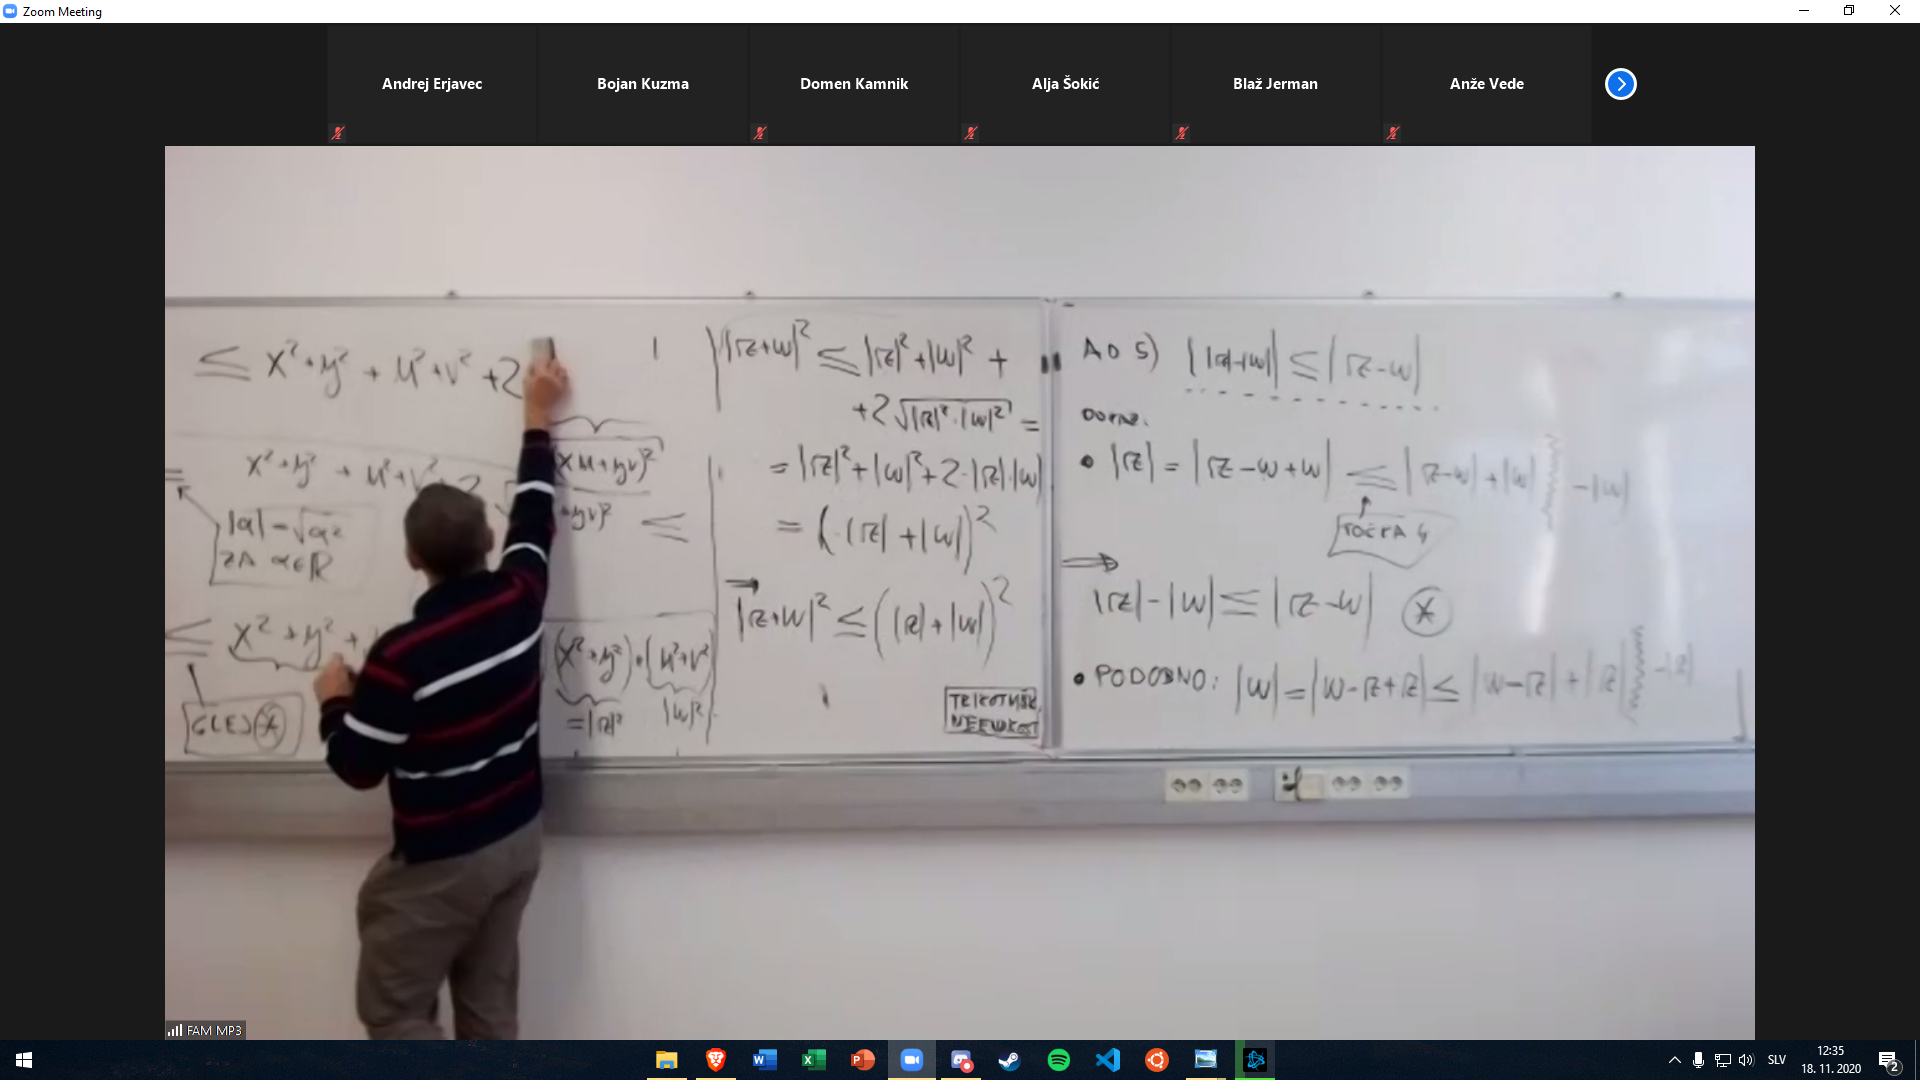 Zoom Meeting
Andrej Erjavec
Bojan Kuzma
Domen Kamnik
Alja Šokić
Blaž Jerman
Anže Vede
≤ x² + y² + u² + v² + 2
= x² + y² + u² + v² + 2
(xu+yv)²
+yv)² ≤
|α| = √α²
ZA α∈ℝ
≤ x² + y² +
(x²+y²)·(u²+v²)
=|z|² |w|²
GLEJ ⊛
|z+w|² ≤ |z|² + |w|² +
+2√|z|²·|w|² =
= |z|² + |w|² + 2·|z|·|w|
= (|z| + |w|)²
⇒ |z+w|² ≤ (|z| + |w|)²
TRIKOTNIŠK.
NEENAKOST
AD 5) ||z|-|w|| ≤ |z-w|
• |z| = |z-w+w| ≤ |z-w| + |w| -|w|
TOČKA 4
⇒ |z| - |w| ≤ |z-w| ⊛
• PODOBNO: |w| = |w-z+z| ≤ |w-z| + |z| -|z|
FAM MP3
SLV
12:35
18. 11. 2020
2